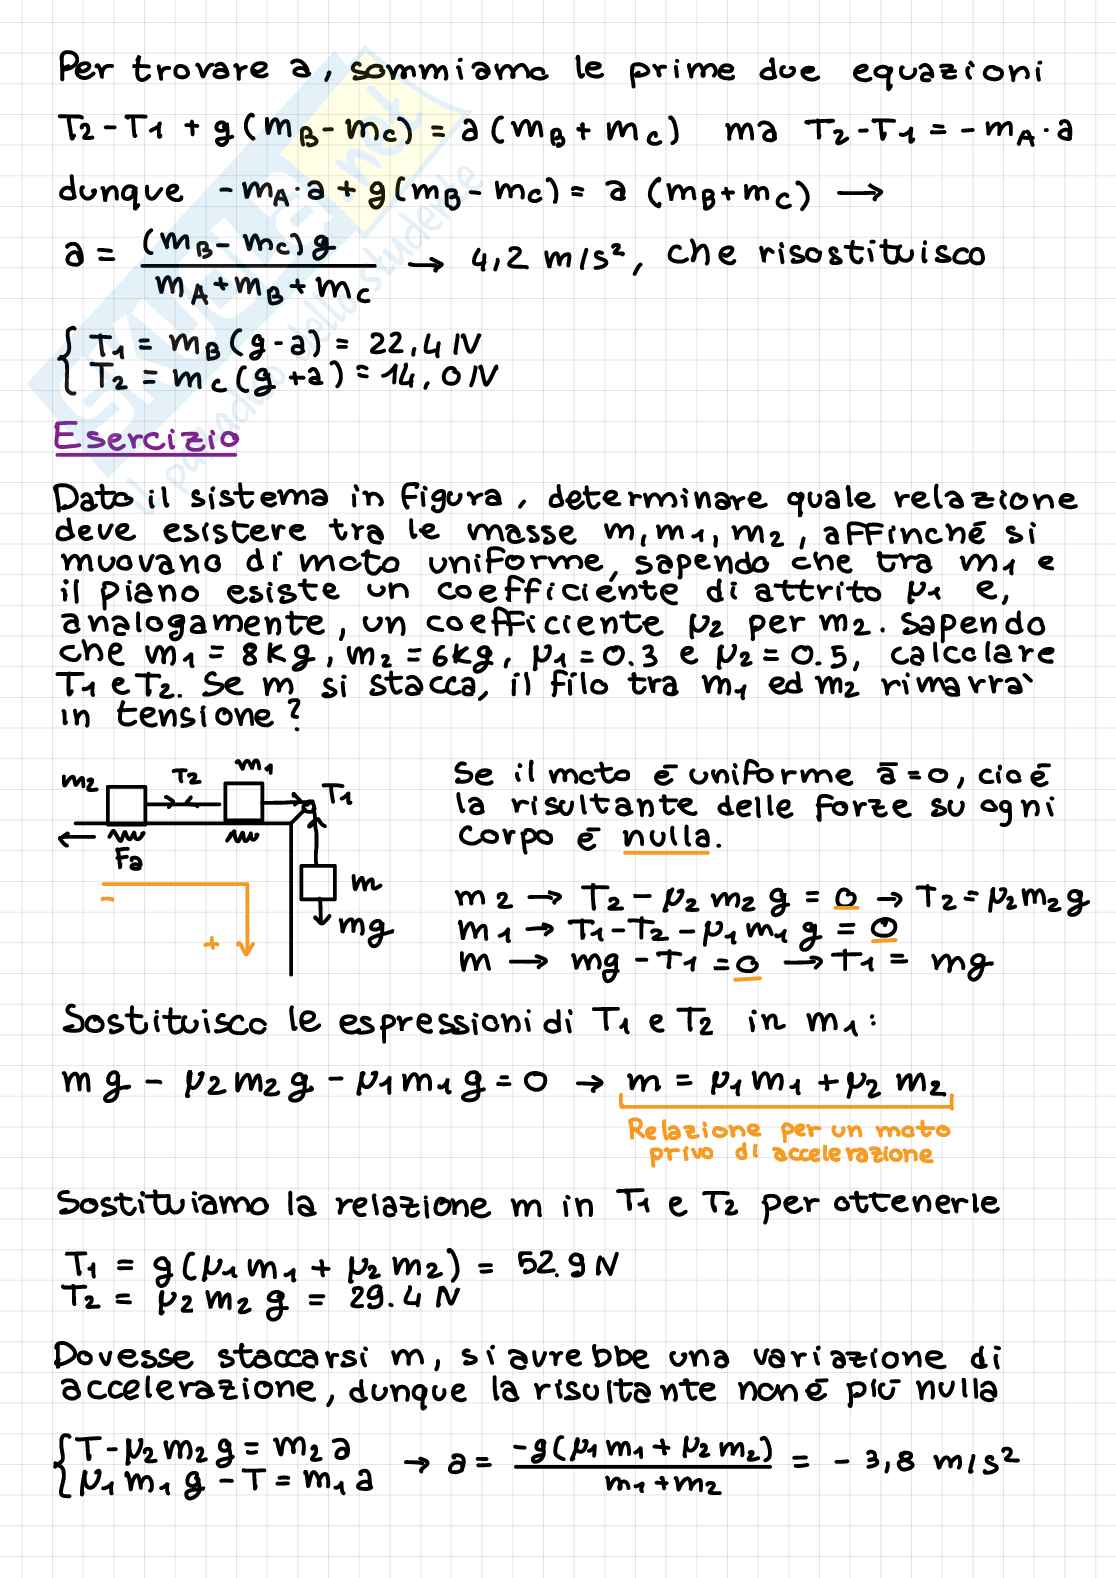 Per trovare a, sommiamo le prime due equazioni
T2-T1 + g(mB-mc) = a(mB+mC) ma T2-T1=-mA·a
dunque -mA·a+g(mB-mC)= a (mB+mC) →
a = (mB-mC)g / mA+mB+mC → 4,2 m/s², che risostituisco
{ T1 = mB(g-a) = 22,4 N
{ T2 = mC(g+a) = 14,0 N
Esercizio
Dato il sistema in figura, determinare quale relazione
deve esistere tra le masse m, m1, m2, affinché si
muovano di moto uniforme, sapendo che tra m1 e
il piano esiste un coefficiente di attrito μ1 e,
analogamente, un coefficiente μ2 per m2. Sapendo
che m1=8kg, m2=6kg, μ1=0.3 e μ2=0.5, calcolare
T1 e T2. Se m si stacca, il filo tra m1 ed m2 rimarrà
in tensione?
m2 T2 m1 T1
Fa
m
mg
-
+
Se il moto è uniforme ā=0, cioè
la risultante delle forze su ogni
corpo è nulla.
m2 → T2-μ2m2g=0 → T2=μ2m2g
m1 → T1-T2-μ1m1g=0
m → mg-T1=0 → T1= mg
Sostituisco le espressioni di T1 e T2 in m1:
mg - μ2m2g - μ1m1g=0 → m=μ1m1+μ2m2
Relazione per un moto
privo di accelerazione
Sostituiamo la relazione m in T1 e T2 per ottenerle
T1 = g(μ1m1+μ2m2) = 52.9N
T2 = μ2m2g = 29.4 N
Dovesse staccarsi m, si avrebbe una variazione di
accelerazione, dunque la risultante non è più nulla
{ T-μ2m2g=m2a
{ μ1m1g-T=m1a → a= -g(μ1m1+μ2m2) / m1+m2 = -3,8 m/s²
SKUOLA.net
il paradiso dello studente